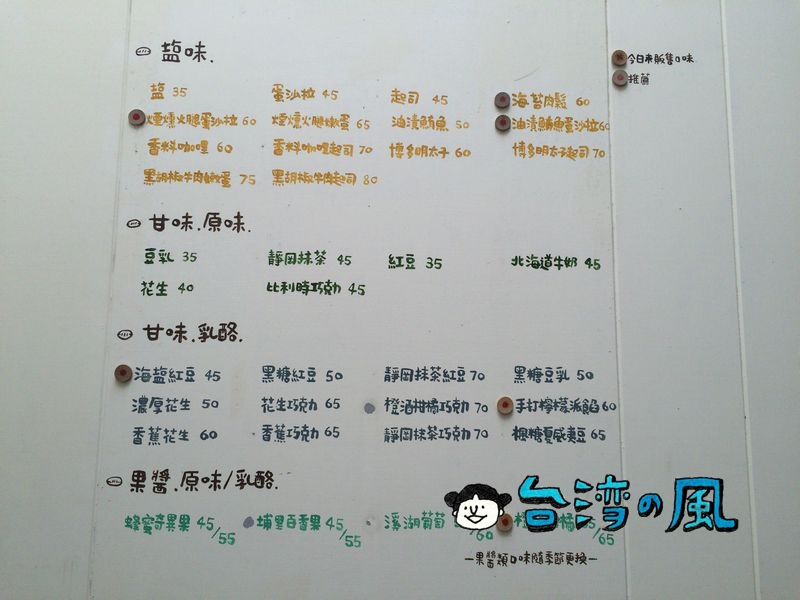 塩味.
塩 35 蛋沙拉 45 起司 45 海苔肉鬆 60
煙燻火腿蛋沙拉 60 煙燻火腿嫩蛋 65 油漬鮪魚 50 油漬鮪魚蛋沙拉60
香料咖哩 60 香料咖哩起司 70 博多明太子 60 博多明太子起司 70
黑胡椒牛肉嫩蛋 75 黑胡椒牛肉起司 80
甘味.原味.
豆乳 35 靜岡抹茶 45 紅豆 35 北海道牛奶 45
花生 40 比利時巧克力 45
甘味.乳酪.
海塩紅豆 45 黑糖紅豆 50 靜岡抹茶紅豆 70 黑糖豆乳 50
濃厚花生 50 花生巧克力 65 橙酒柑橘巧克力 70 手打檸檬派餡 60
香蕉花生 60 香蕉巧克力 65 靜岡抹茶巧克力 70 楓糖夏威夷豆 65
果醬.原味/乳酪.
蜂蜜奇異果 45/55 埔里百香果 45/55 溪湖葡萄 /60 橘 /65
—果醬類口味隨季節更換—
今日未販售口味
推薦
台湾の風